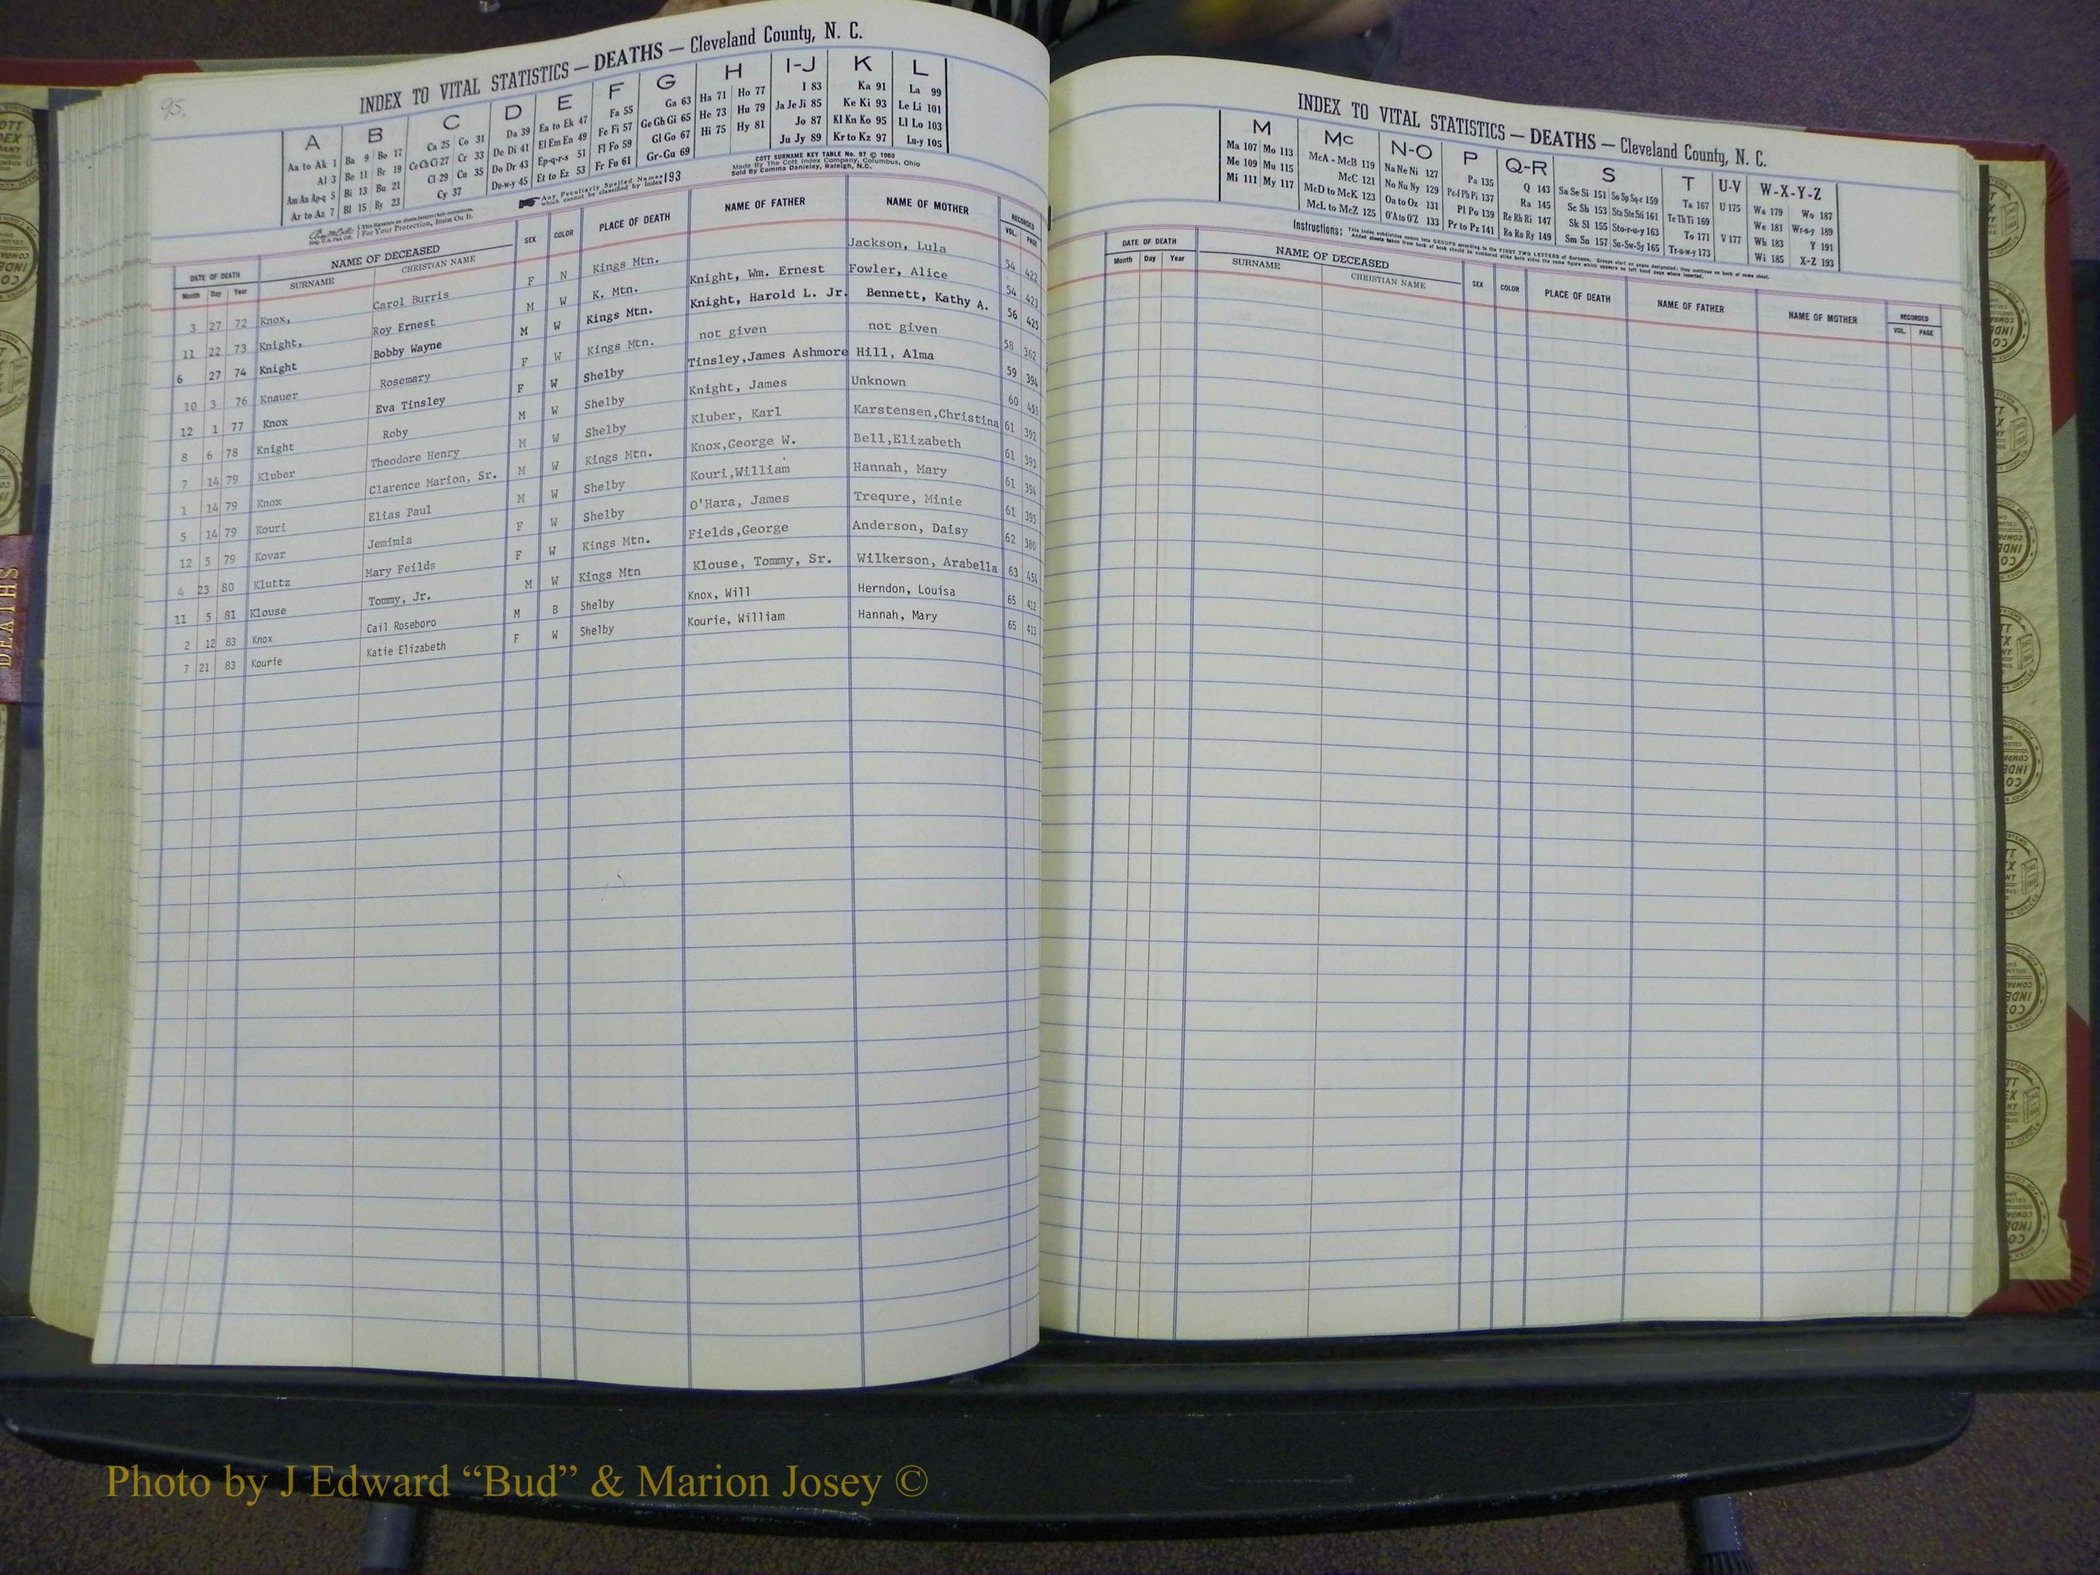 95.
INDEX TO VITAL STATISTICS — DEATHS — Cleveland County, N. C.
A B C D E F G H I-J K L
Aa to Ak 1 Ba 9 Bo 17 Ca 25 Co 31 Da 39 Ea to Ek 47 Fa 55 Ga 63 Ha 71 Ho 77 I 83 Ka 91 La 99
Al 3 Be 11 Br 19 Ce Ch Ci 27 Cr 33 De Di 41 El Em En 49 Fe Fi 57 Ge Gh Gi 65 He 73 Hu 79 Ja Je Ji 85 Ke Ki 93 Le Li 101
Am An Ap-q 5 Bi 13 Bu 21 Cl 29 Cu 35 Do Dr 43 Ep-q-r-s 51 Fl Fo 59 Gl Go 67 Hi 75 Hy 81 Jo 87 Kl Kn Ko 95 Ll Lo 103
Ar to Az 7 Bl 15 By 23 Cy 37 Du-w-y 45 Et to Ez 53 Fr Fu 61 Gr-Gu 69 Ju Jy 89 Kr to Kz 97 Lu-y 105
COTT SURNAME KEY TABLE No. 97 © 1960
Made By The Cott Index Company, Columbus, Ohio
Sold By Comma Danieley, Raleigh, N.C.
Any Peculiarly Spelled Names which cannot be classified by Index 193
For Your Protection, Insist On It.
DATE OF DEATH NAME OF DECEASED SEX COLOR PLACE OF DEATH NAME OF FATHER NAME OF MOTHER RECORDED
Month Day Year SURNAME CHRISTIAN NAME VOL. PAGE
3 27 72 Knox, Carol Burris F N Kings Mtn. Jackson, Lula 54 422
11 22 73 Knight, Roy Ernest M W K. Mtn. Knight, Wm. Ernest Fowler, Alice 54 423
6 27 74 Knight Bobby Wayne M W Kings Mtn. Knight, Harold L. Jr. Bennett, Kathy A. 56 425
10 3 76 Knauer Rosemary F W Kings Mtn. not given not given 58 362
12 1 77 Knox Eva Tinsley F W Shelby Tinsley,James Ashmore Hill, Alma 59 394
8 6 78 Knight Roby M W Shelby Knight, James Unknown 60 455
7 14 79 Kluber Theodore Henry M W Shelby Kluber, Karl Karstensen,Christina 61 392
1 14 79 Knox Clarence Marion, Sr. M W Kings Mtn. Knox,George W. Bell,Elizabeth 61 393
5 14 79 Kouri Elias Paul M W Shelby Kouri,William Hannah, Mary 61 394
12 5 79 Kovar Jemimia F W Shelby O'Hara, James Trequre, Minie 61 395
4 23 80 Kluttz Mary Feilds F W Kings Mtn. Fields,George Anderson, Daisy 62 380
11 5 81 Klouse Tommy, Jr. M W Kings Mtn Klouse, Tommy, Sr. Wilkerson, Arabella 63 454
2 12 83 Knox Cail Roseboro M B Shelby Knox, Will Herndon, Louisa 65 412
7 21 83 Kourie Katie Elizabeth F W Shelby Kourie, William Hannah, Mary 65 413
INDEX TO VITAL STATISTICS — DEATHS — Cleveland County, N. C.
M Mc N-O P Q-R S T U-V W-X-Y-Z
Ma 107 Mo 113 McA - McB 119 Na Ne Ni 127 Pa 135 Q 143 Sa Se Si 151 So Sp Sq-r 159 Ta 167 U 175 Wa 179 Wo 187
Me 109 Mu 115 McC 121 No Nu Ny 129 Pe-f Ph Pi 137 Ra 145 Sc Sh 153 Sta Ste Sti 161 Te Th Ti 169 We 181 Wr-u-y 189
Mi 111 My 117 McD to McK 123 Oa to Oz 131 Pl Po 139 Re Rh Ri 147 Sk Sl 155 Sto-r-u-y 163 To 171 V 177 Wh 183 Y 191
McL to McZ 125 O'A to O'Z 133 Pr to Pz 141 Ro Ru Ry 149 Sm Sn 157 Su-Sw-Sy 165 Tr-u-w-y 173 Wi 185 X-Z 193
Instructions: This index subdivides names into GROUPS according to the FIRST TWO LETTERS of Surname.
DATE OF DEATH NAME OF DECEASED SEX COLOR PLACE OF DEATH NAME OF FATHER NAME OF MOTHER RECORDED
Month Day Year SURNAME CHRISTIAN NAME VOL. PAGE
DEATHS
Photo by J Edward “Bud” & Marion Josey ©